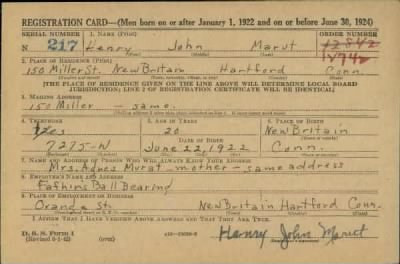 REGISTRATION CARD—(Men born on or after January 1, 1922 and on or before June 30, 1924)
SERIAL NUMBER 1. NAME (Print) ORDER NUMBER
N 217 Henry John Marut 12842
(First) (Middle) (Last) 12942
2. PLACE OF RESIDENCE (Print)
150 Miller St. New Britain Hartford Conn.
(Number and street) (Town, township, village, or city) (County) (State)
[THE PLACE OF RESIDENCE GIVEN ON THE LINE ABOVE WILL DETERMINE LOCAL BOARD
JURISDICTION; LINE 2 OF REGISTRATION CERTIFICATE WILL BE IDENTICAL]
3. MAILING ADDRESS
150 Miller — same.
[Mailing address if other than place indicated on line 2. If same insert word same]
4. TELEPHONE 5. AGE IN YEARS 6. PLACE OF BIRTH
Yes 20 New Britain
DATE OF BIRTH
7275-W June 22, 1922 Conn.
7. NAME AND ADDRESS OF PERSON WHO WILL ALWAYS KNOW YOUR ADDRESS
Mrs. Agnes Murat - mother - same address
8. EMPLOYER'S NAME AND ADDRESS
Fafhins Ball Bearing
9. PLACE OF EMPLOYMENT OR BUSINESS
Orange St. New Britain Hartford Conn.
(Number and street or R. F. D. number) (Town) (County) (State)
I AFFIRM THAT I HAVE VERIFIED ABOVE ANSWERS AND THAT THEY ARE TRUE.
D. S. S. Form 1
(Revised 6-1-42) (over) Henry John Marut